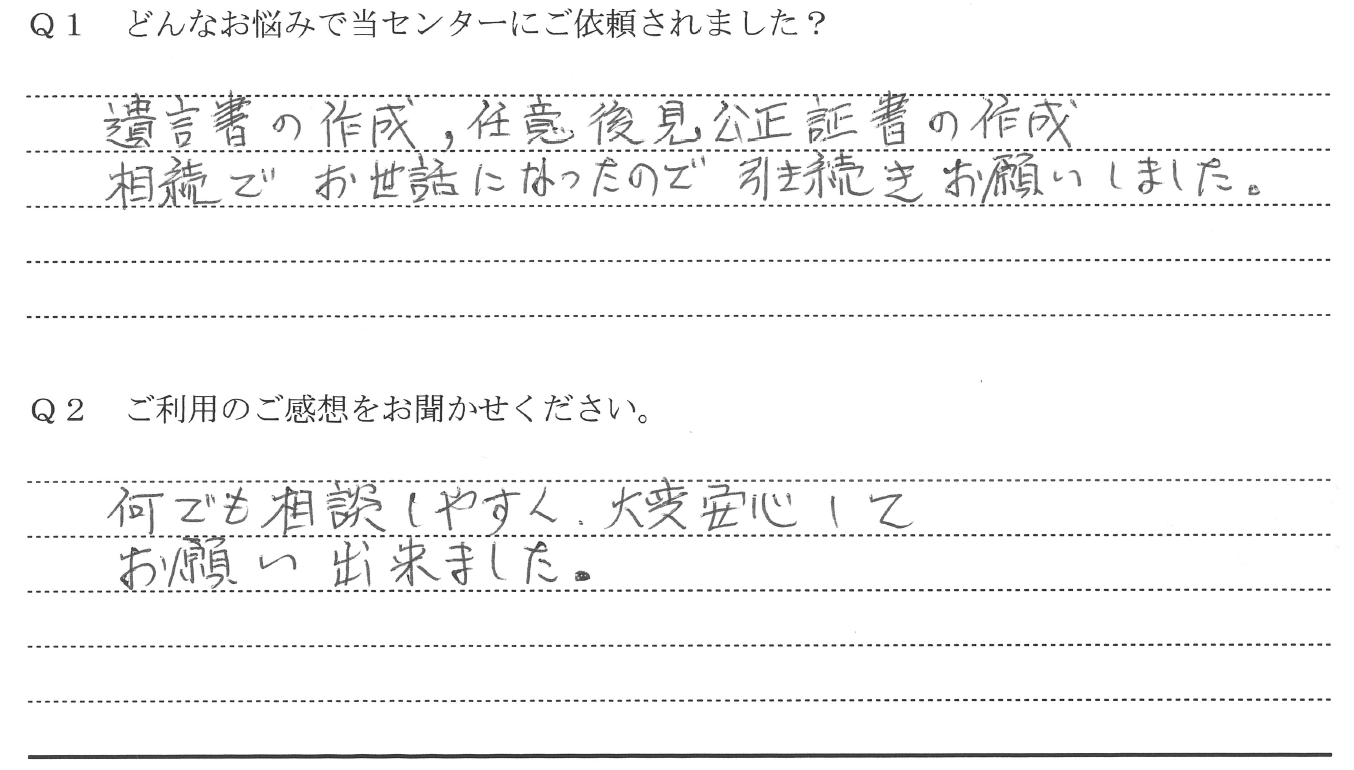 Q1 どんなお悩みで当センターにご依頼されました?
遺言書の作成,任意後見公正証書の作成
相続で お世話になったので 引き続き お願いしました。
Q2 ご利用のご感想をお聞かせください。
何でも相談しやすく、大変安心して
お願い出来ました。